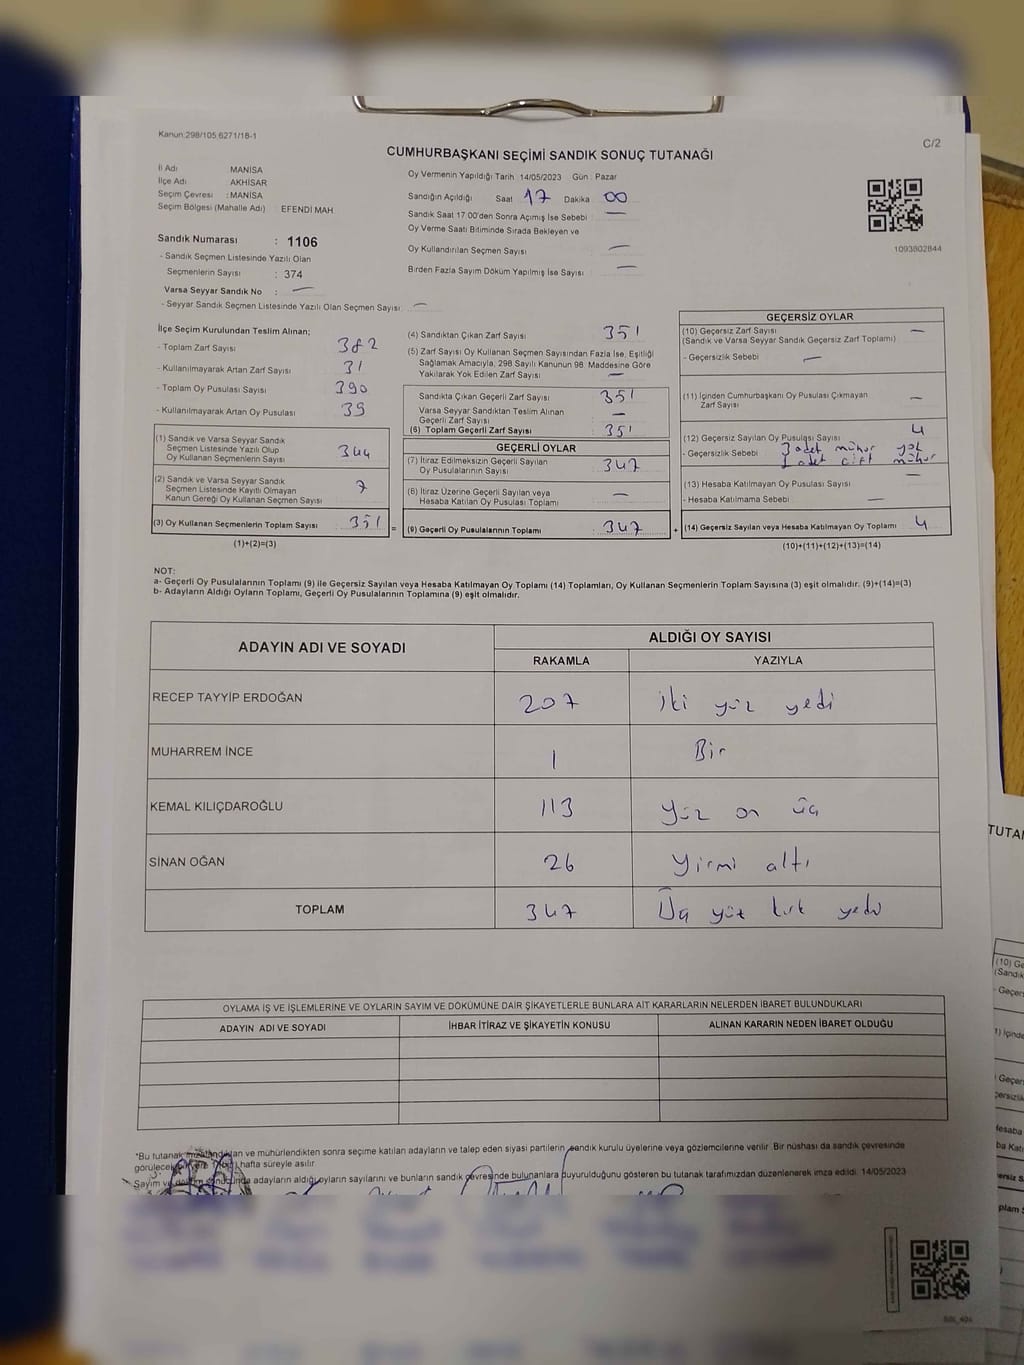 Kanun:298/105 6271/18-1
C/2
CUMHURBAŞKANI SEÇİMİ SANDIK SONUÇ TUTANAĞI
İl Adı MANİSA
İlçe Adı AKHİSAR
Seçim Çevresi : MANİSA
Seçim Bölgesi (Mahalle Adı) : EFENDİ MAH
Oy Vermenin Yapıldığı Tarih : 14/05/2023 Gün : Pazar
Sandığın Açıldığı Saat 17 Dakika 00
Sandık Saat 17:00'den Sonra Açımış İse Sebebi : —
Oy Verme Saati Bitiminde Sırada Bekleyen ve
Oy Kullandırılan Seçmen Sayısı : —
Birden Fazla Sayım Döküm Yapılmış İse Sayısı : —
1093802844
Sandık Numarası : 1106
- Sandık Seçmen Listesinde Yazılı Olan
Seçmenlerin Sayısı : 374
Varsa Seyyar Sandık No : —
- Seyyar Sandık Seçmen Listesinde Yazılı Olan Seçmen Sayısı: —
İlçe Seçim Kurulundan Teslim Alınan;
- Toplam Zarf Sayısı 382
- Kullanılmayarak Artan Zarf Sayısı 31
- Toplam Oy Pusulası Sayısı 390
- Kullanılmayarak Artan Oy Pusulası 39
(1) Sandık ve Varsa Seyyar Sandık
Seçmen Listesinde Yazılı Olup
Oy Kullanan Seçmenlerin Sayısı 344
(2) Sandık ve Varsa Seyyar Sandık
Seçmen Listesinde Kayıtlı Olmayan
Kanun Gereği Oy Kullanan Seçmen Sayısı 7
(3) Oy Kullanan Seçmenlerin Toplam Sayısı 351 =
(1)+(2)=(3)
(4) Sandıktan Çıkan Zarf Sayısı 351
(5) Zarf Sayısı Oy Kullanan Seçmen Sayısından Fazla İse, Eşitliği
Sağlamak Amacıyla, 298 Sayılı Kanunun 98. Maddesine Göre
Yakılarak Yok Edilen Zarf Sayısı : —
Sandıkta Çıkan Geçerli Zarf Sayısı : 351
Varsa Seyyar Sandıktan Teslim Alınan
Geçerli Zarf Sayısı : —
(6) Toplam Geçerli Zarf Sayısı : 351
GEÇERLİ OYLAR
(7) İtiraz Edilmeksizin Geçerli Sayılan
Oy Pusulalarının Sayısı : 347
(8) İtiraz Üzerine Geçerli Sayılan veya
Hesaba Katılan Oy Pusulası Toplamı : —
(9) Geçerli Oy Pusulalarının Toplamı : 347 +
GEÇERSİZ OYLAR
(10) Geçersiz Zarf Sayısı —
(Sandık ve Varsa Seyyar Sandık Geçersiz Zarf Toplamı)
- Geçersizlik Sebebi : —
(11) İçinden Cumhurbaşkanı Oy Pusulası Çıkmayan
Zarf Sayısı —
(12) Geçersiz Sayılan Oy Pusulası Sayısı 4
- Geçersizlik Sebebi : 3 adet mühür yok
1 adet çift mühür
(13) Hesaba Katılmayan Oy Pusulası Sayısı —
- Hesaba Katılmama Sebebi : —
(14) Geçersiz Sayılan veya Hesaba Katılmayan Oy Toplamı 4
(10)+(11)+(12)+(13)=(14)
NOT:
a- Geçerli Oy Pusulalarının Toplamı (9) ile Geçersiz Sayılan veya Hesaba Katılmayan Oy Toplamı (14) Toplamları, Oy Kullanan Seçmenlerin Toplam Sayısına (3) eşit olmalıdır. (9)+(14)=(3)
b- Adayların Aldığı Oyların Toplamı, Geçerli Oy Pusulalarının Toplamına (9) eşit olmalıdır.
ADAYIN ADI VE SOYADI ALDIĞI OY SAYISI
RAKAMLA YAZIYLA
RECEP TAYYİP ERDOĞAN 207 iki yüz yedi
MUHARREM İNCE 1 Bir
KEMAL KILIÇDAROĞLU 113 yüz on üç
SİNAN OĞAN 26 yirmi altı
TOPLAM 347 Üç yüz kırk yedi
OYLAMA İŞ VE İŞLEMLERİNE VE OYLARIN SAYIM VE DÖKÜMÜNE DAİR ŞİKAYETLERLE BUNLARA AİT KARARLARIN NELERDEN İBARET BULUNDUKLARI
ADAYIN ADI VE SOYADI İHBAR İTİRAZ VE ŞİKAYETİN KONUSU ALINAN KARARIN NEDEN İBARET OLDUĞU
*Bu tutanak imzalandıktan ve mühürlendikten sonra seçime katılan adayların ve talep eden siyasi partilerin sandık kurulu üyelerine veya gözlemcilerine verilir. Bir nüshası da sandık çevresinde
görülecek bir yere 1 (bir) hafta süreyle asılır.
Sayım ve döküm sonucunda adayların aldığı oyların sayılarını ve bunların sandık çevresinde bulunanlara duyurulduğunu gösteren bu tutanak tarafımızdan düzenlenerek imza edildi. 14/05/2023
TUTA